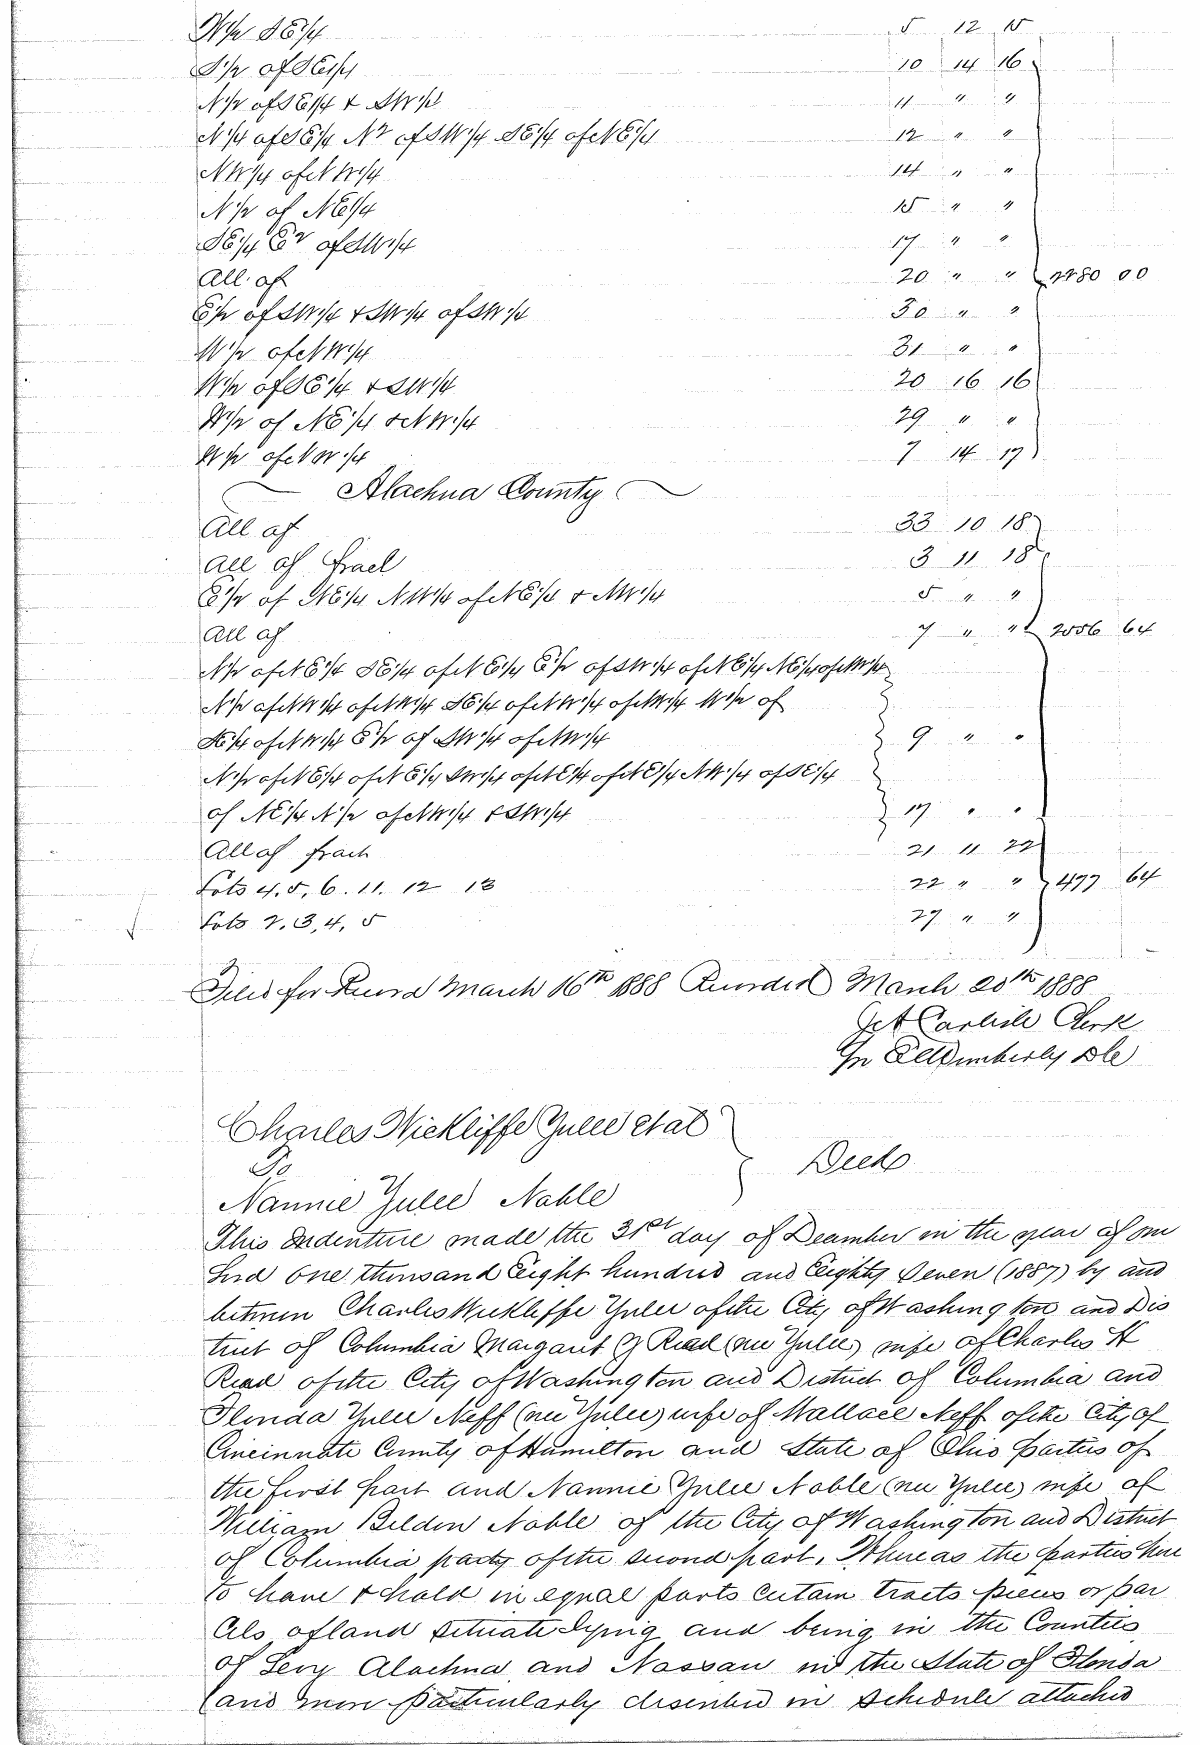 W½ SE¼ 5 12 15
S½ of SE¼ 10 14 16
N½ of SE¼ & SW¼ 11 " "
N¼ of SE¼ N2 of SW¼ SE¼ of NE¼ 12 " "
NW¼ of NW¼ 14 " "
N½ of NE¼ 15 " "
SE¼ E2 of SW¼ 17 " "
All of 20 " " 00
E½ of SW¼ & SW¼ of SW¼ 30 " "
W½ of NW¼ 31 " "
W½ of SE¼ & SW¼ 20 16 16
W½ of NE¼ & NW¼ 29 " "
W½ of NW¼ 7 14 17
Alachua County
All of 33 10 18
All of fracl 3 11 18
E½ of NE¼ NW¼ of NE¼ & NW¼ 5 " "
All of 7 " " 2056 64
N½ of NE¼ SE¼ of NE¼ E½ of SW¼ of NE¼ NE¼ of NW¼
N½ of NW¼ of NW¼ SE¼ of NW¼ of NW¼ W½ of
SE¼ of NW¼ E½ of SW¼ of NW¼ 9 " "
N½ of NE¼ of NE¼ SW¼ of NE¼ of NE¼ NW¼ of SE¼
of NE¼ N½ of NW¼ & SW¼ 17 " "
All of frach 21 11 22
Lots 4. 5, 6. 11. 12 13 22 " " 477 64
Lots 2. 3, 4, 5 27 " "
Filed for Record March 16th 1888 Recorded March 20th 1888
Carlisle Clerk
Dc
Charles Wickliffe Yulee et al
To Deed
Nannie Yulee Noble
This Indenture made the 31st day of December in the year of our
Lord One thousand Eight hundred and Eighty Seven (1887) by and
between Charles Wickliffe Yulee of the City of Washington and Dis
trict of Columbia Margaret Y Read (nee Yulee) wife of Charles H
Read of the City of Washington and District of Columbia and
Florida Yulee Neff (nee Yulee) wife of Wallace Neff of the City of
Cincinnate County of Hamilton and State of Ohio parties of
the first part and Nannie Yulee Noble (nee Yulee) wife of
William Belden Noble of the City of Washington and District
of Columbia party of the second part. Whereas the parties here
to have & hold in equal parts Certain tracts pieces or par
cels of land situate lying and being in the Counties
of Levy Alachua and Nassau in the State of Florida
(and more particularly described in schedule attached